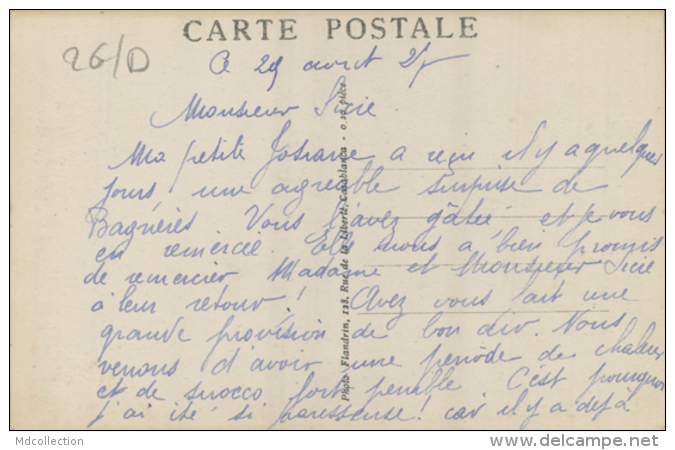 CARTE POSTALE
26/D
Ce 29 avril 25
Monsieur Sicie
Ma petite Josiane a reçu il y a quelques
jours une agréable surprise de
Bagnères Vous l'avez gâtée et je vous
en remercie. Elle nous a bien promis
de remercier Madame et Monsieur Sicie
à leur retour! Avez vous fait une
grande provision de bon air. Nous
venons d'avoir une période de chaleur
et de sirocco fort pénible C'est pourquoi
j'ai été si paresseuse! car il y a déjà
Photo Flandrin, 128, Rue de la Liberté, Casablanca. - 0.10 pièce
Mdcollection
delcampe.net